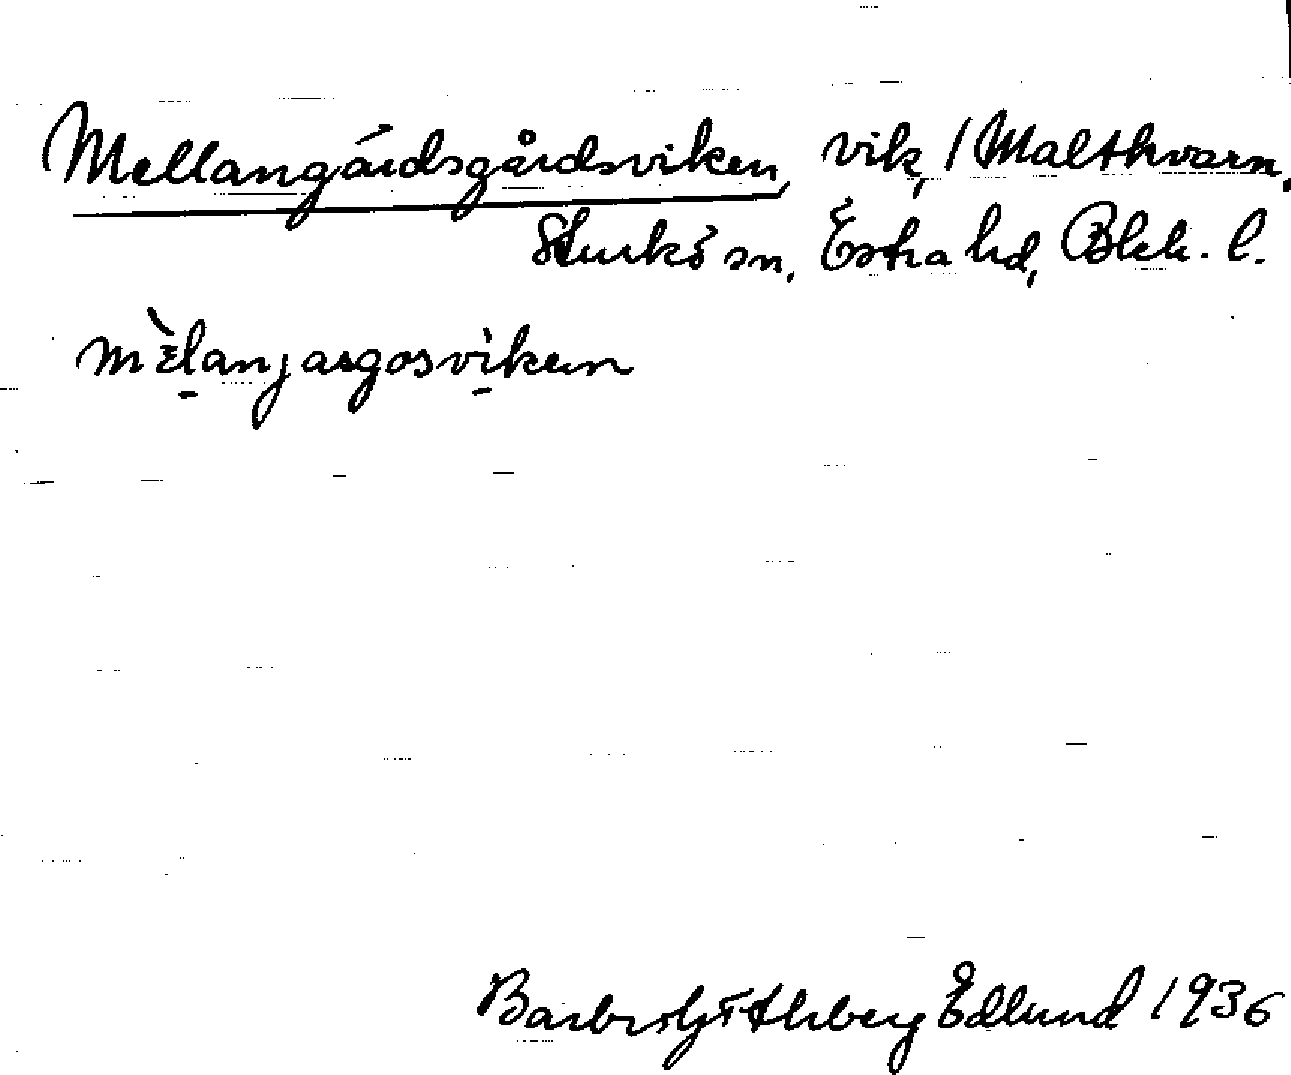 Mellangärdsgårdsviken, vik, / Maltkvarn,
Sturkö sn, Östra hd, Blek. l.
mɛ̀lanjasgosviken
Barbro Göthberg Edlund 1936